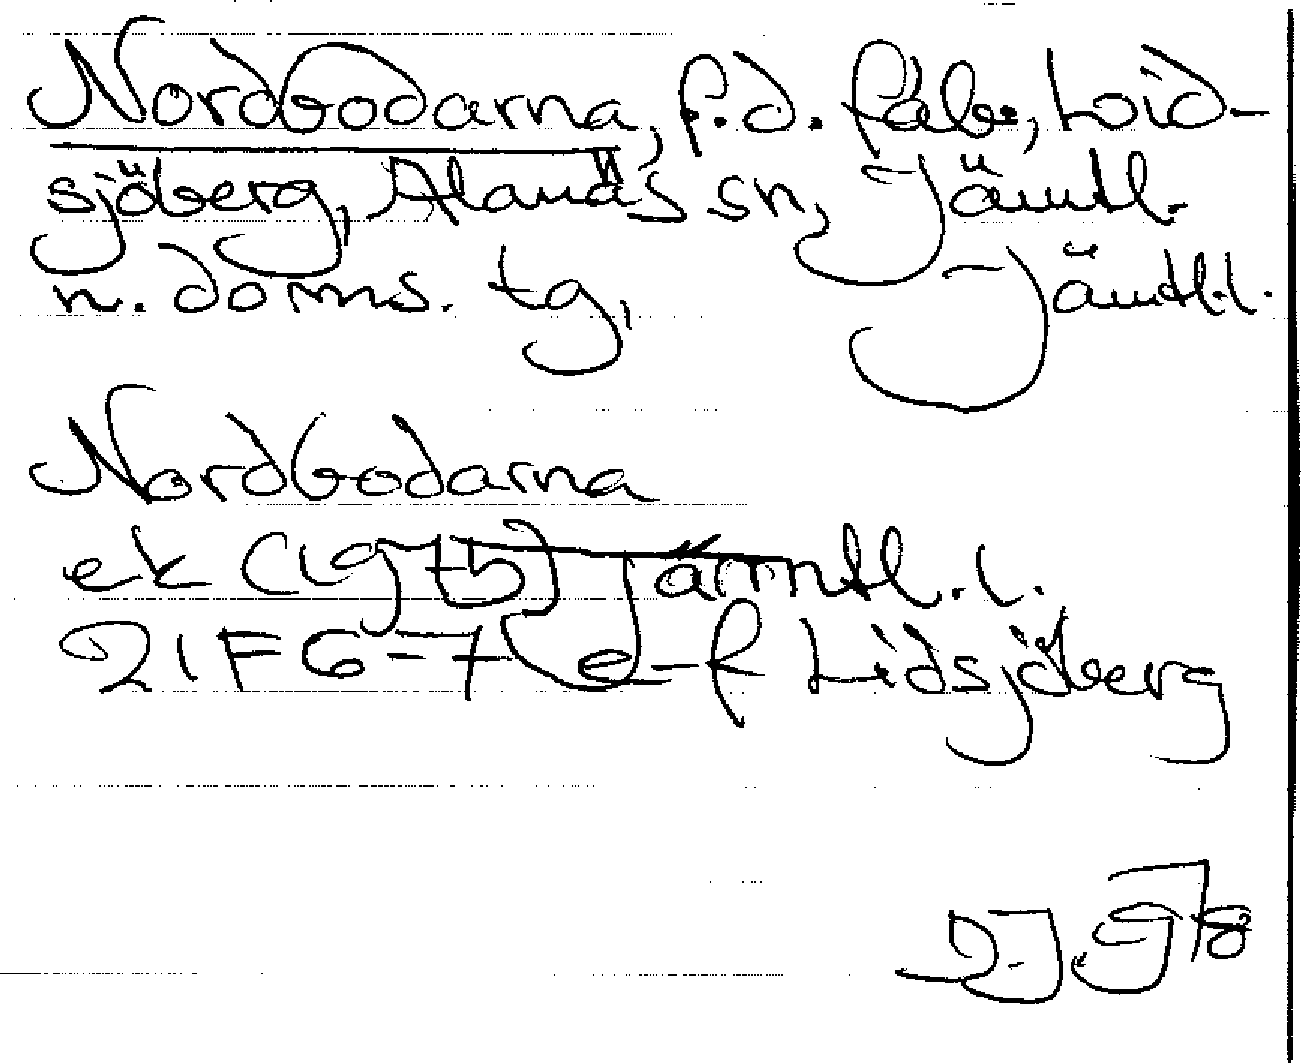 Nordbodarna, f.d. fäb., Loid-
sjöberg, Alanäs sn, Jämtl.
n. doms. tg, Jämtl.l.
Nordbodarna
ek (1975) Jämtl.l.
21F 6-7 e-f Lidsjöberg